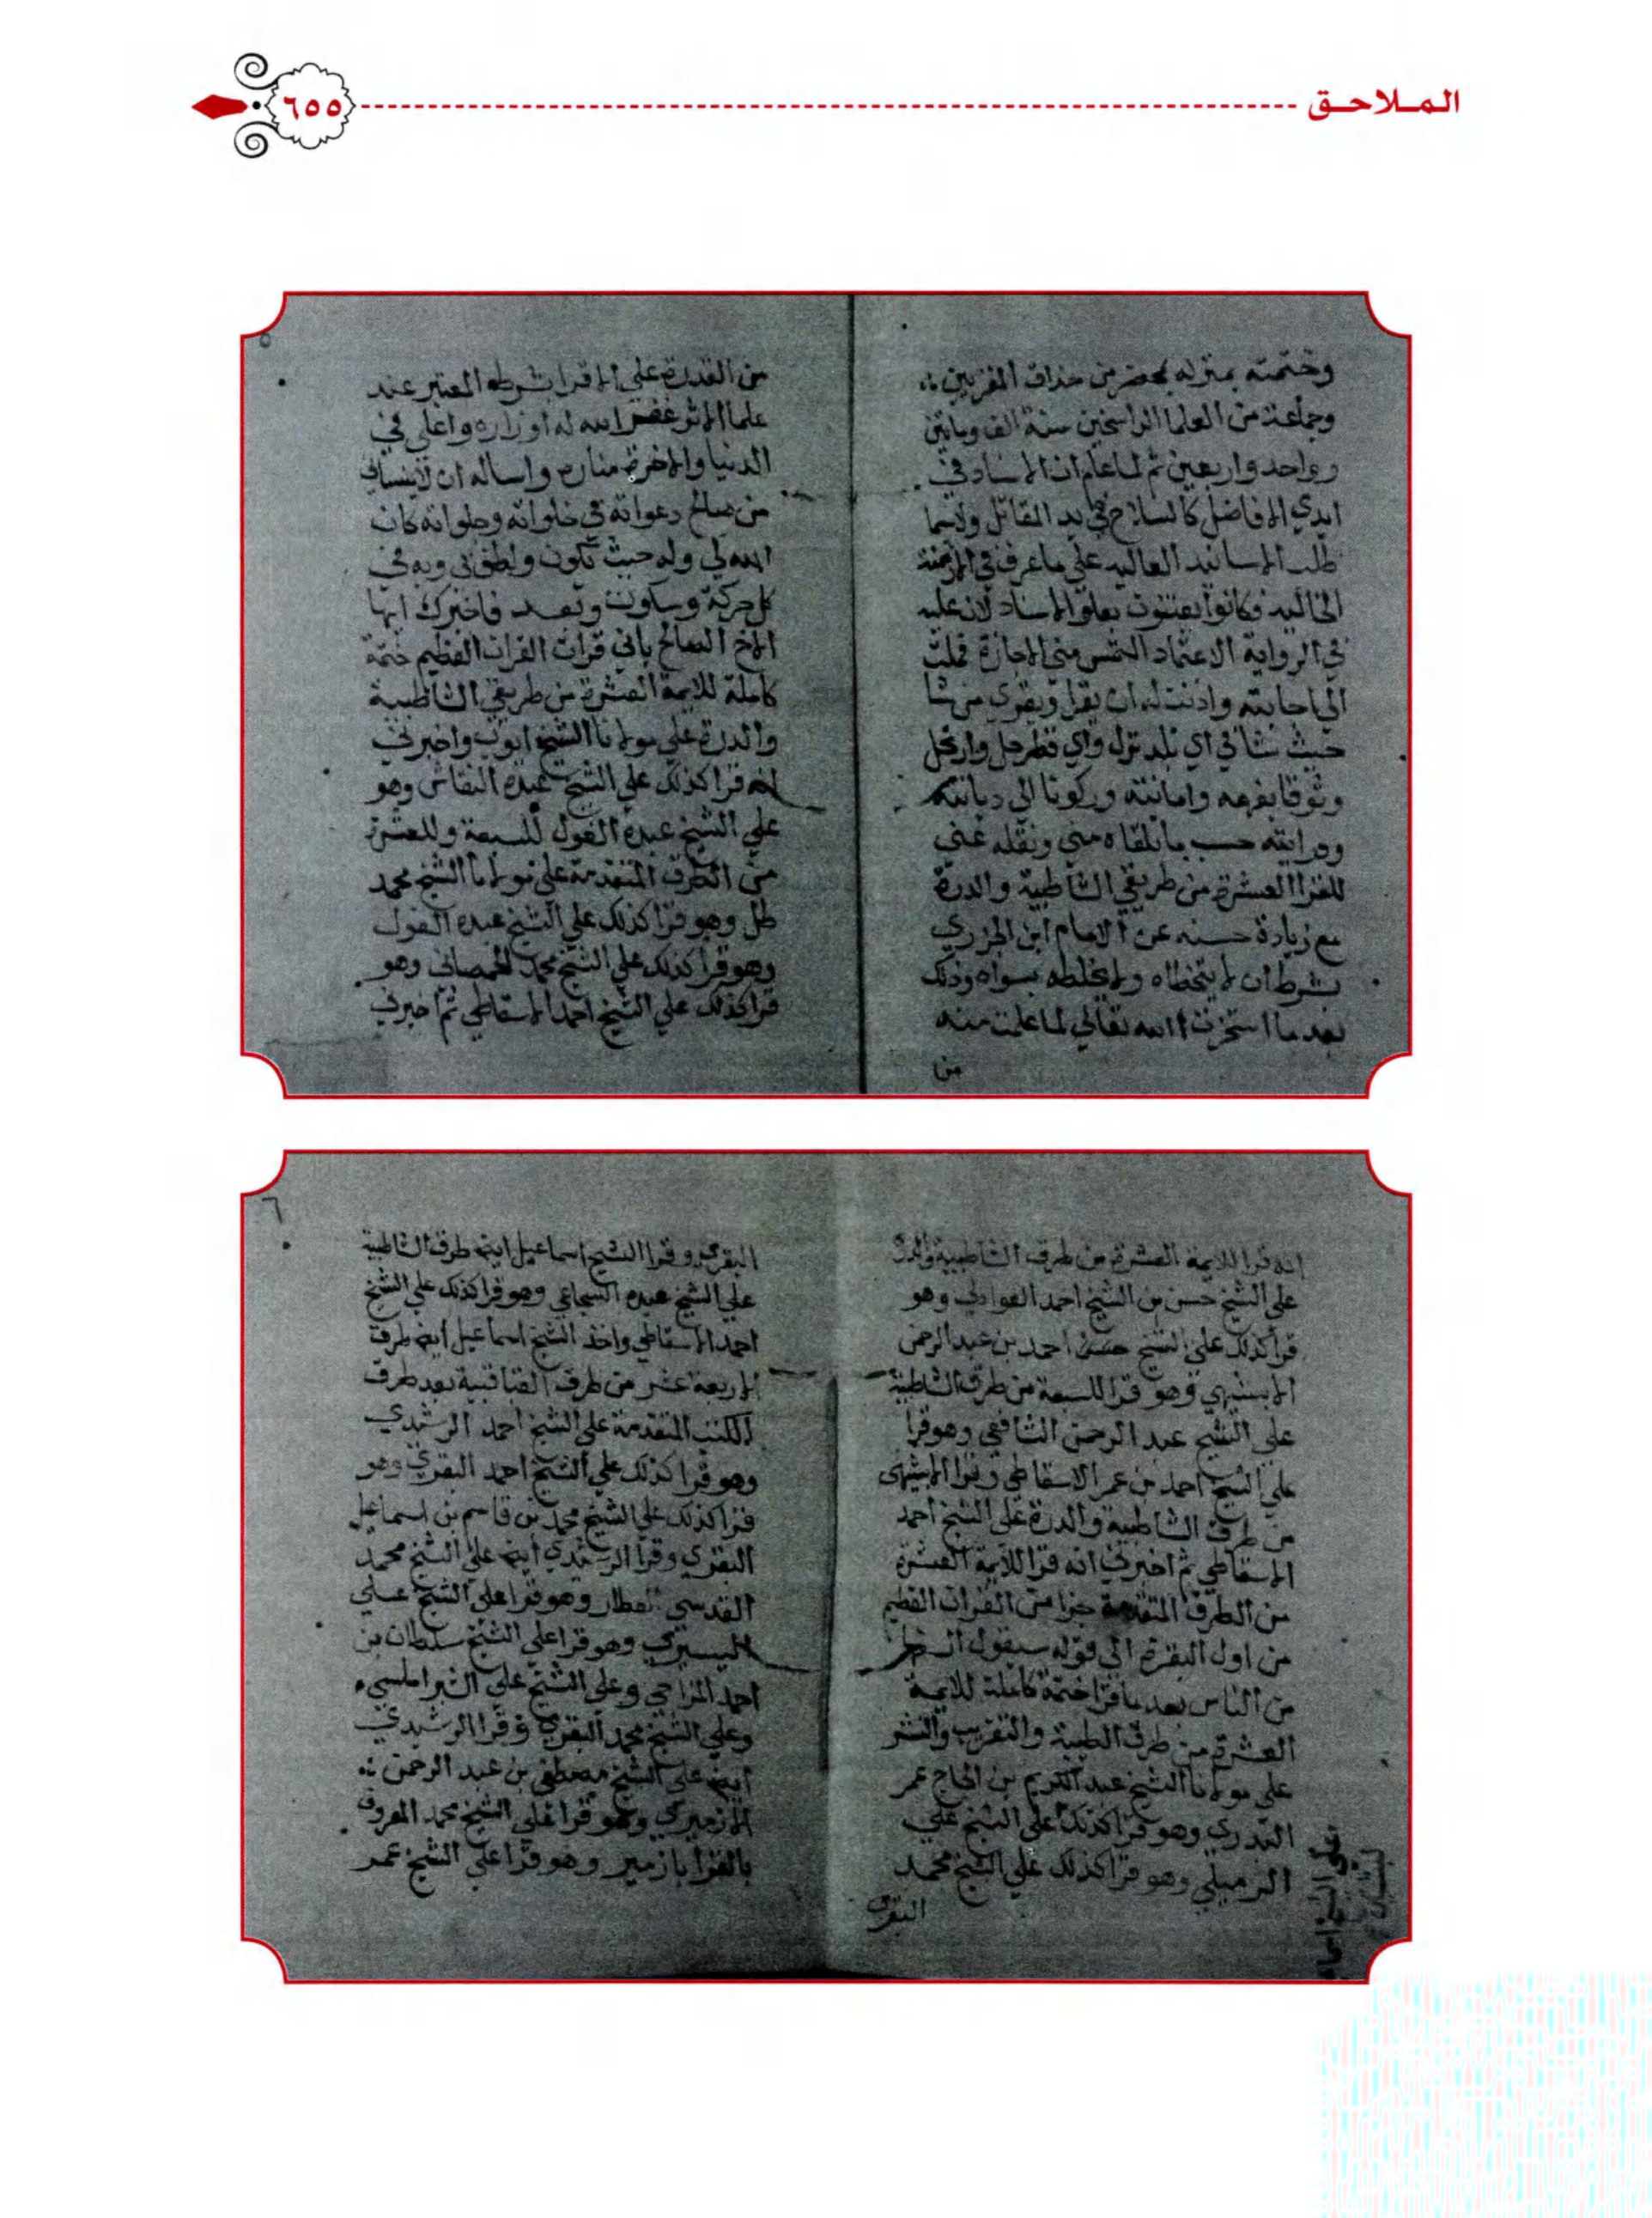 الملاحق
٦٥٥
وختمته بمنزله بمحضر من حذاق المقريين
وجماعة من العلما الراسخين سنة الف ومايتين
وواحد واربعين ثم لما علم ان الاسناد في
ايدي الافاضل كالسلاح في يد المقاتل ولاسيما
طلب الاسانيد العاليه علي ما عرف في الازمنة
الخاليه فكانوا يعتنون بعلو الاسناد لان عليه
في الرواية الاعتماد التمس مني الاجازة فملت
الي اجابته واذنت له ان يقرا ويقري من شا
حيث شا في اي بلد نزل واي قطر حل وارتحل
وثوقا بفهمه وامانته وركونا الي ديانته
ودرايته حسب ما تلقاه مني ونقله عني
للقرا العشرة من طريقي الشاطبية والدرة
مع زيادة حسنه عن الامام ابن الجزري
بشرط ان لا يتخطاه ولا يخلطه بسواه وذلك
بعد ما استخرت الله تعالي لما علمت منه
من
٥
من القدرة علي الاقرا بشرطه المعتبر عند
علما الاثر غفر الله له اوزاره واعلي في
الدنيا والاخرة مناره واساله ان لا ينساني
من صالح دعواته في خلواته وجلواته كان
الله لي وله حيث نكون ولطف بي وبه في
كل حركة وسكون وبعد فاخبرك ايها
الاخ الصالح باني قرات القران العظيم ختمة
كاملة للايمة العشرة من طريقي الشاطبية
والدرة علي مولانا الشيخ ايوب واخبرني
انه قرا كذلك علي الشيخ عبده النقاش وهو
علي الشيخ عبده الفول للسبعة وللعشرة
من الطرق المتقدمة علي مولانا الشيخ محمد
طل وهو قرا كذلك علي الشيخ عبده الفول
وهو قرا كذلك علي الشيخ محمد الحمصاني وهو
قرا كذلك علي الشيخ احمد الاسقاطي ثم اخبرني
انه قرا للايمة العشرة من طرق الشاطبية والدرة
علي الشيخ حسن بن الشيخ احمد العوادلي وهو
قرا كذلك علي الشيخ احمد بن عبد الرحمن
الابشيهي وهو قرا للسبعة من طرق الشاطبية
علي الشيخ عبد الرحمن الشافعي وهو قرا
علي الشيخ احمد بن عمر الاسقاطي وقرا الابشيهي
من طرق الشاطبية والدرة علي الشيخ احمد
الاسقاطي ثم اخبرني انه قرا للايمة العشرة
من الطرق المتقدمة جزا من القران العظيم
من اول البقرة الي قوله سيقول السفها
من الناس بعد ما قرا ختمة كاملة للايمة
العشرة من طرق الطيبة والتقريب والنشر
علي مولانا الشيخ عبد الكريم بن الحاج عمر
البدري وهو قرا كذلك علي الشيخ علي
الرميلي وهو قرا كذلك علي الشيخ محمد
البقري
٦
البقري وقرا الشيخ اسماعيل ايضا طرق الشاطبية
علي الشيخ عبده السجاعي وهو قرا كذلك علي الشيخ
احمد الاسقاطي واخذ الشيخ اسماعيل ايضا طرق
الاربعة عشر من طرق القباقبية بعد طرق
الكتب المتقدمة علي الشيخ احمد الرشيدي
وهو قرا كذلك علي الشيخ احمد البقري وهو
قرا كذلك علي الشيخ محمد بن قاسم بن اسماعيل
البقري وقرا الرشيدي ايضا علي الشيخ محمد
القدسي العطار وهو قرا علي الشيخ علي
وهو قرا علي الشيخ سلطان بن
احمد المزاحي وعلي الشيخ علي الشبراملسي
وعلي الشيخ محمد البقري وقرا الرشيدي
ايضا علي الشيخ مصطفي بن عبد الرحمن
الازميري وهو قرا علي الشيخ محمد المعروف
بالقرا بازمير وهو قرا علي الشيخ عمر